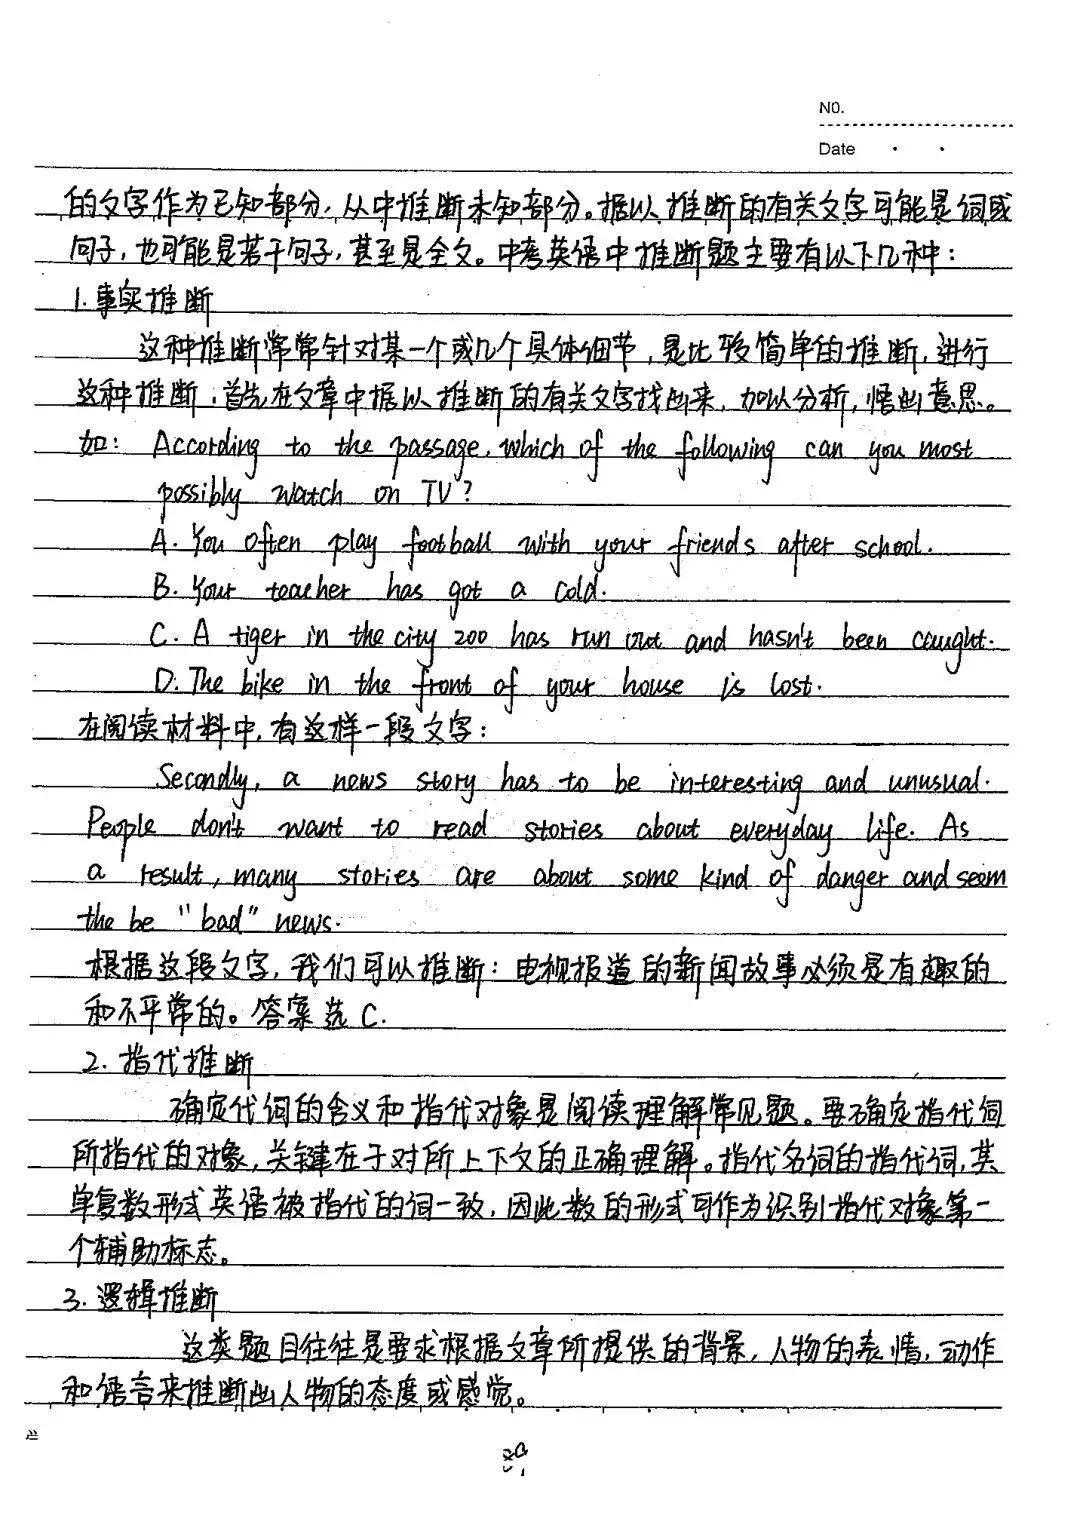 NO.
Date
的文字作为已知部分,从中推断未知部分。据以推断的有关文字可能是词或
句子,也可能是若干句子,甚至是全文。中考英语中推断题主要有以下几种:
1.事实推断
这种推断常常针对某一个或几个具体细节,是比较简单的推断,进行
这种推断,首先在文章中据以推断的有关文字找出来,加以分析,悟出意思。
如: According to the passage, which of the following can you most
possibly watch on TV?
A. You often play football with your friends after school.
B. Your teacher has got a cold.
C. A tiger in the city zoo has run out and hasn't been caught.
D. The bike in the front of your house is lost.
在阅读材料中,有这样一段文字:
Secondly, a news story has to be interesting and unusual.
People don't want to read stories about everyday life. As
a result, many stories are about some kind of danger and seem
the be "bad" news.
根据这段文字,我们可以推断:电视报道的新闻故事必须是有趣的
和不平常的。答案选C.
2. 指代推断
确定代词的含义和指代对象是阅读理解常见题。要确定指代词
所指代的对象,关键在于对所上下文的正确理解。指代名词的指代词,其
单复数形式英语被指代的词一致,因此数的形式可作为识别指代对象第一
个辅助标志。
3.逻辑推断
这类题目往往是要求根据文章所提供的背景,人物的表情,动作
和语言来推断出人物的态度或感觉。